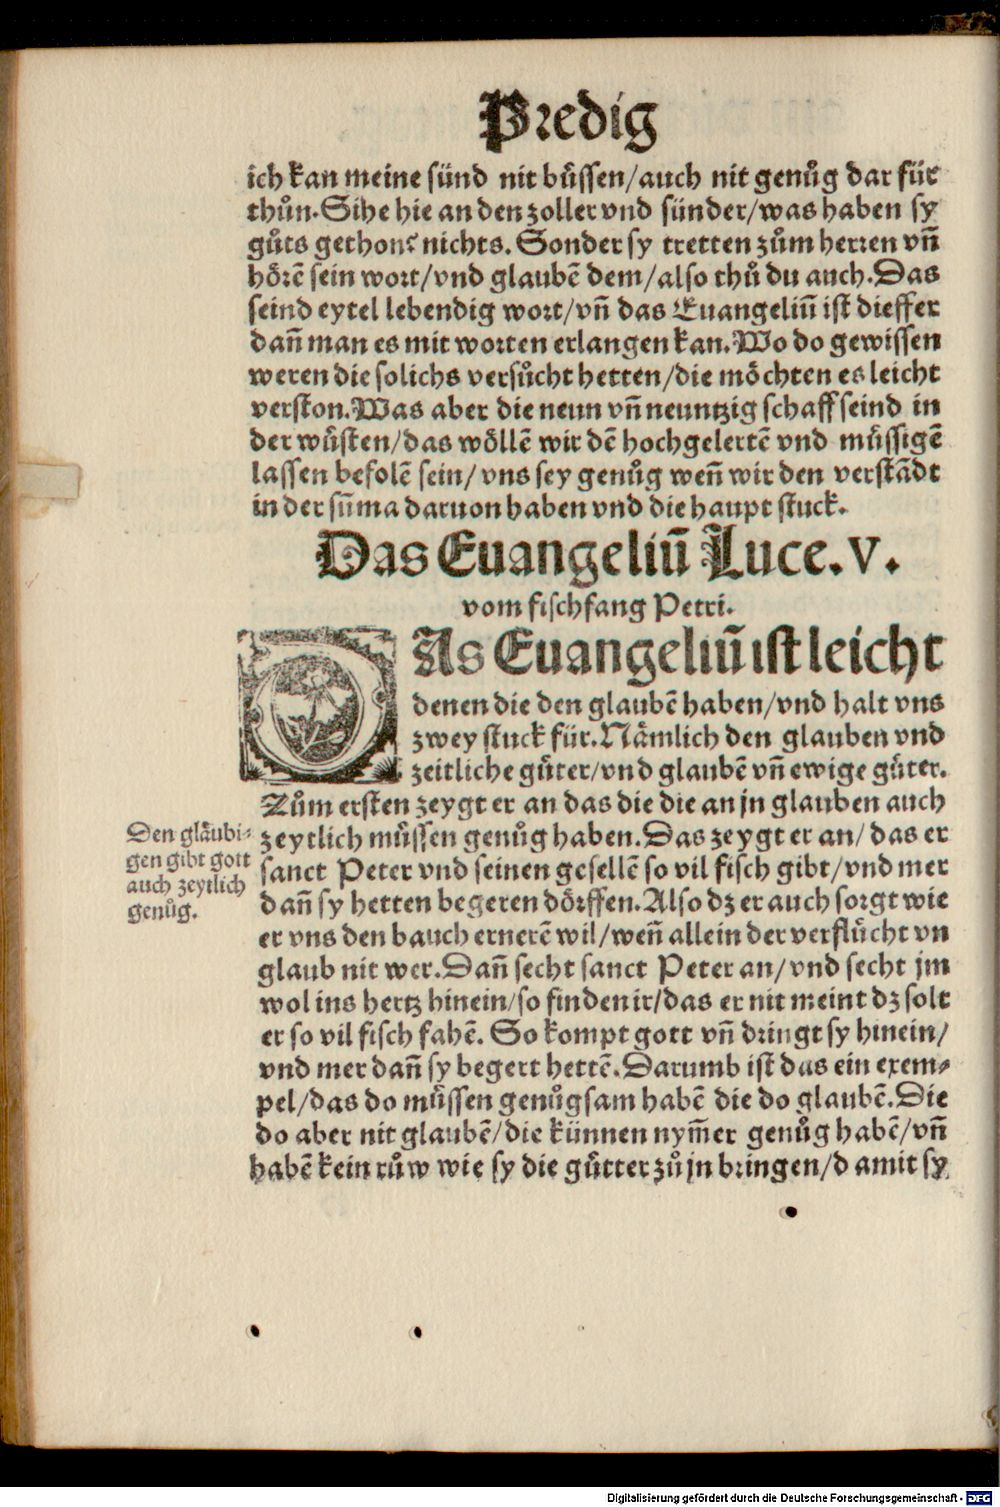 Predig
ich kan meine sünd nit bůssen/auch nit genůg dar für
thůn. Sihe hie an den zoller vnd sünder/was haben sy
gůts gethon? nichts. Sonder sy tretten zům herren vñ
hörẽ sein wort/vnd glaubẽ dem/also thů du auch. Das
seind eytel lebendig wort/vñ das Euangeliũ ist dieffer
dañ man es mit worten erlangen kan. Wo do gewissen
weren die solichs versůcht hetten/die möchten es leicht
verston. Was aber die neun vñ neuntzig schaff seind in
der wůsten/das wöllẽ wir dẽ hochgelertẽ vnd müssigẽ
lassen befolẽ sein/vns sey genůg weñ wir den verstãdt
in der sũma daruon haben vnd die haupt stuck.
Das Euangeliũ Luce. V.
vom fischfang Petri.
DAs Euangeliũ ist leicht
denen die den glaubẽ haben/vnd halt vns
zwey stuck für. Nämlich den glauben vnd
zeitliche gůter/vnd glaubẽ vñ ewige gůter.
Zům ersten zeygt er an das die die an jn glauben auch
zeytlich můssen genůg haben. Das zeygt er an/das er
sanct Peter vnd seinen gesellẽ so vil fisch gibt/vnd mer
dañ sy hetten begeren dörffen. Also dz er auch sorgt wie
er vns den bauch ernerẽ wil/weñ allein der verflůcht vn
glaub nit wer. Dañ secht sanct Peter an/vnd secht jm
wol ins hertz hinein/so finden ir/das er nit meint dz solt
er so vil fisch fahẽ. So kompt gott vñ dringt sy hinein/
vnd mer dañ sy begert hettẽ. Darumb ist das ein exem⸗
pel/das do můssen genůgsam habẽ die do glaubẽ. Die
do aber nit glaubẽ/die künnen nym̃er genůg habẽ/vñ
habẽ kein růw wie sy die gůtter zů jn bringen/damit sy
Den gläubi⸗
gen gibt gott
auch zeytlich
genůg.
Digitalisierung gefördert durch die Deutsche Forschungsgemeinschaft - DFG